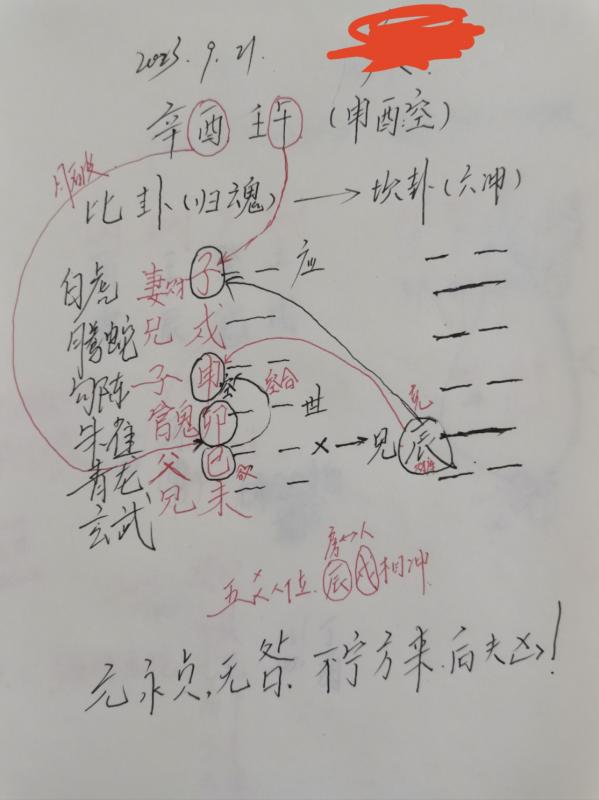 2023.9.21.
辛酉 壬午 (申酉空)
月破
比卦(归魂) → 坎卦(六冲)
白虎 妻财 子 应
腾蛇 兄 戌
勾陈 子 申 空 空合
朱雀 官鬼 卯 世 克
青龙 父 巳 × → 兄 辰
玄武 兄 未
五爻人位 辰戌相冲
元永贞,无咎.不宁方来.后夫凶!